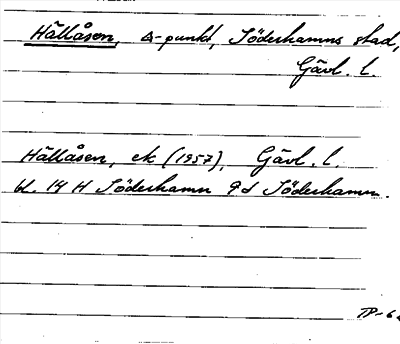 Hällåsen, △-punkt, Söderhamns stad,
Gävl. l.
Hällåsen, ek (1957), Gävl. l.
bl. 14 H Söderhamn 9 d Söderhamn.